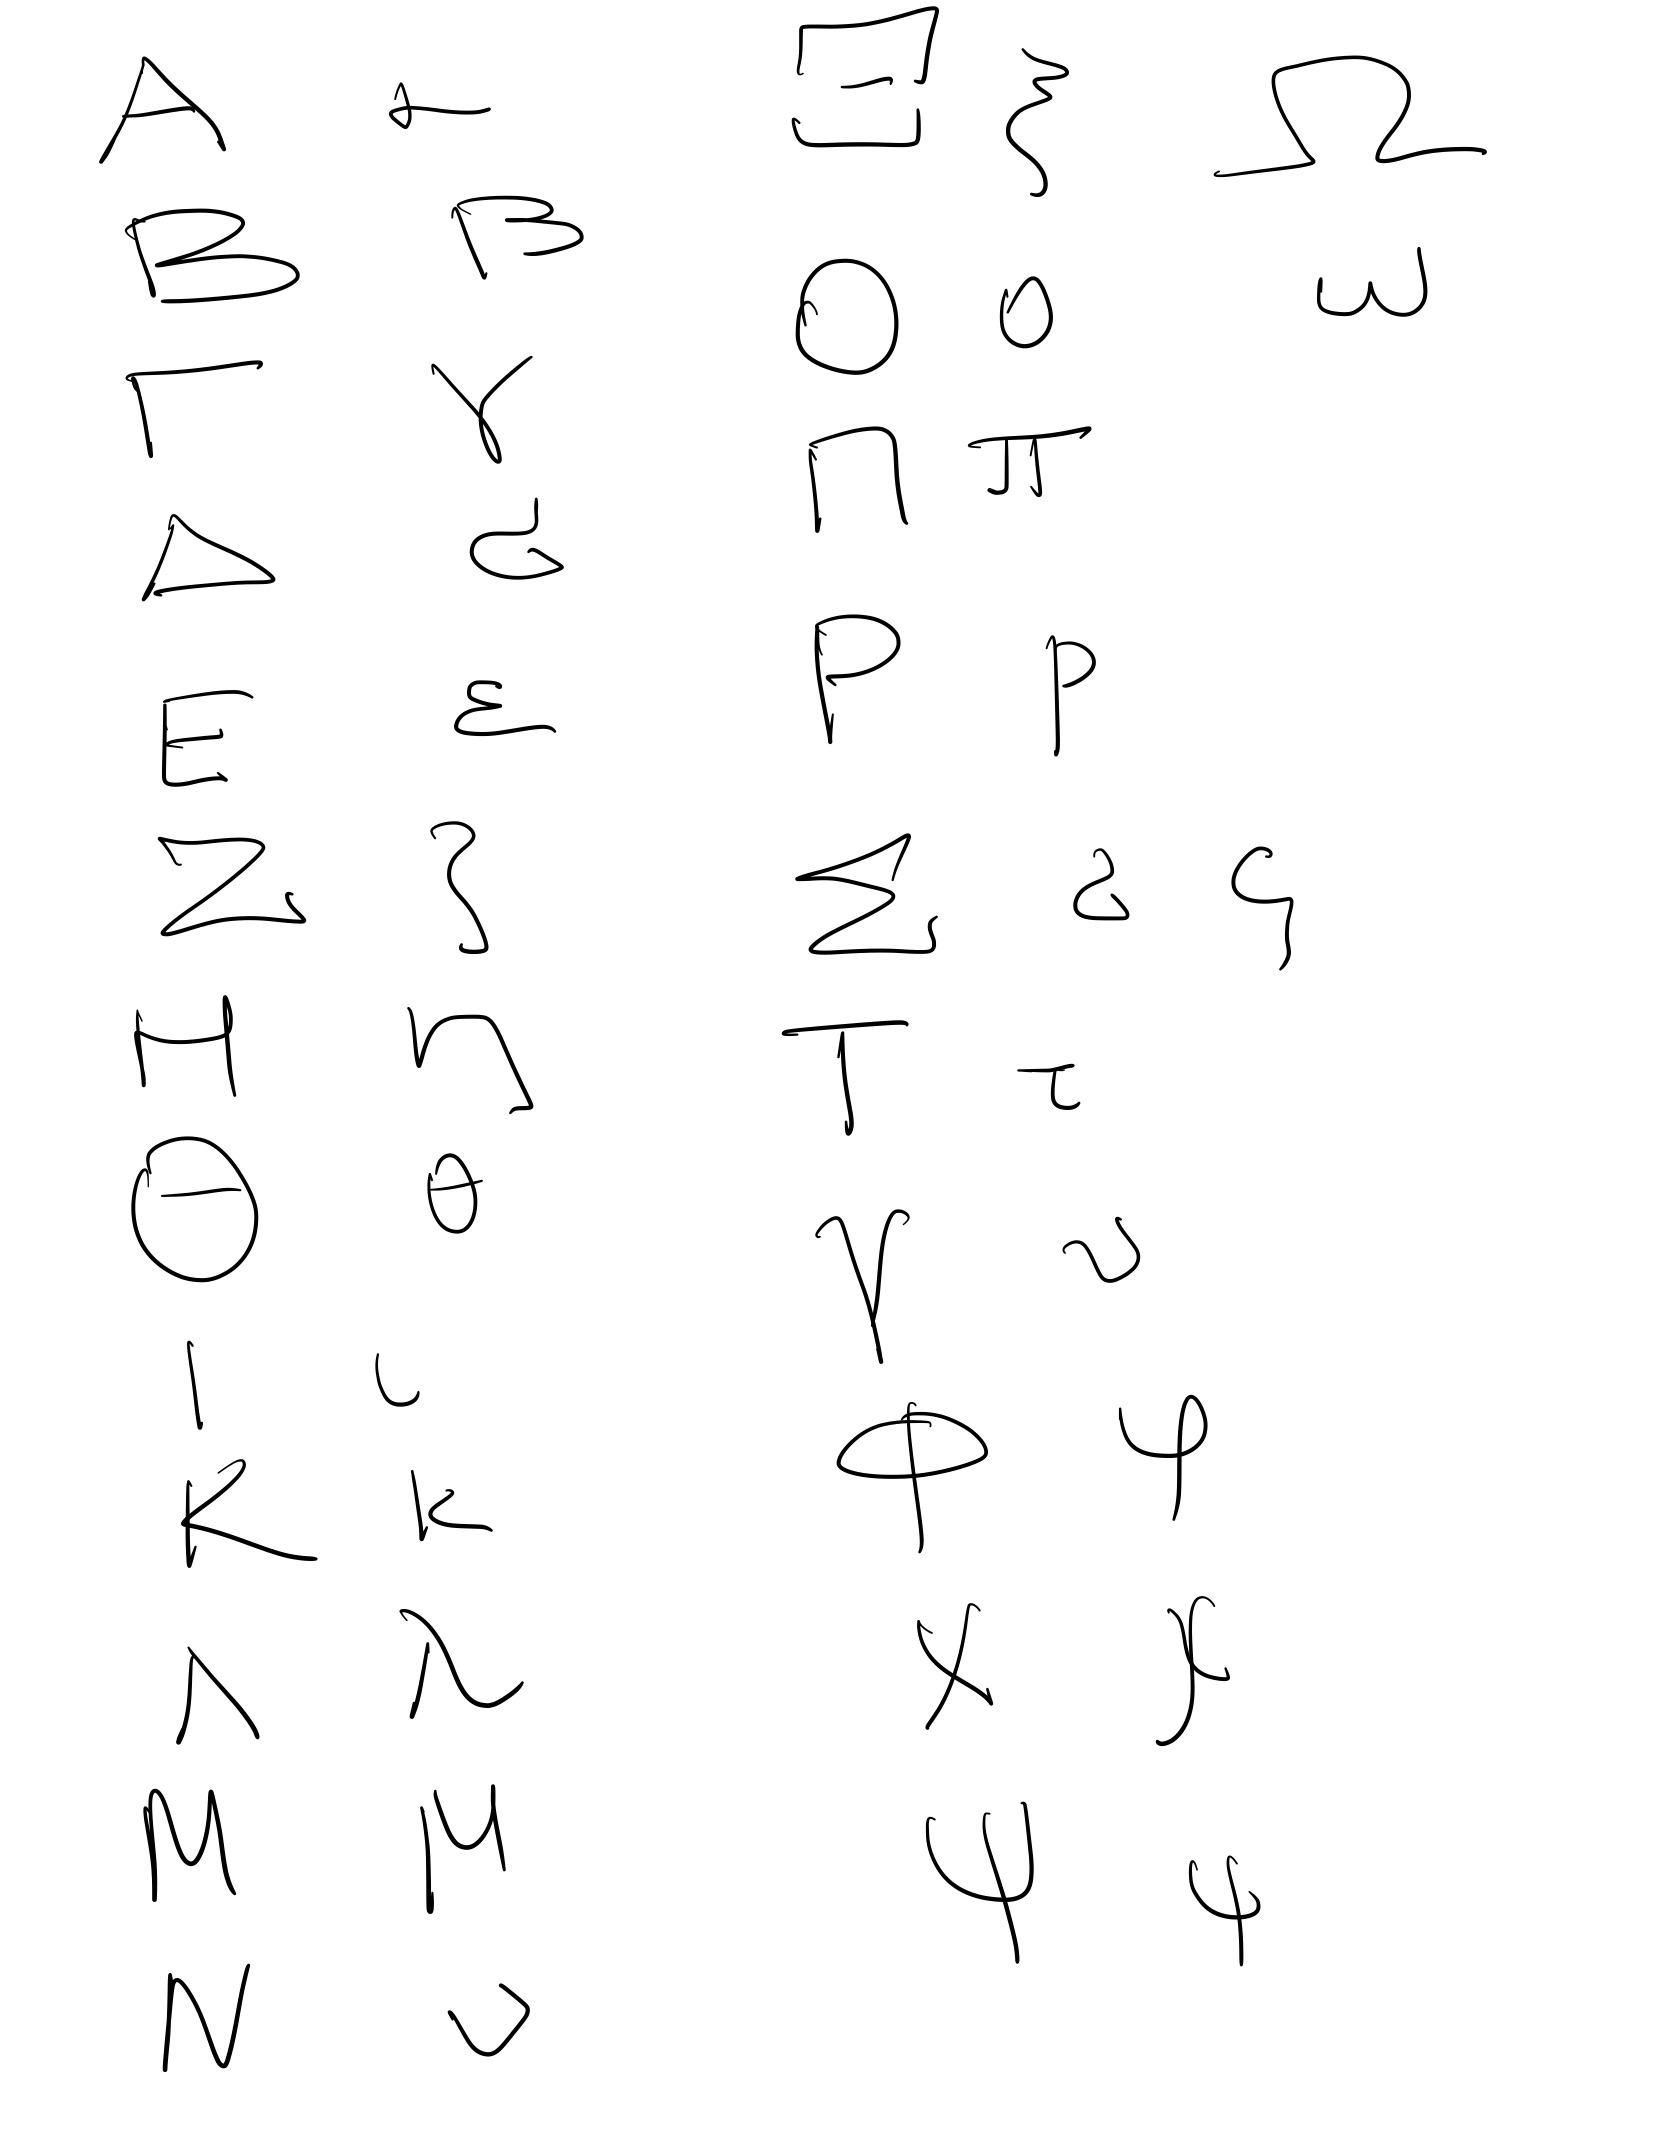 Α α
Β β
Γ γ
Δ δ
Ε ε
Ζ ζ
Η η
Θ θ
Ι ι
Κ κ
Λ λ
Μ μ
Ν ν
Ξ ξ
Ο ο
Π π
Ρ ρ
Σ σ ς
Τ τ
Υ υ
Φ φ
Χ χ
Ψ ψ
Ω
ω